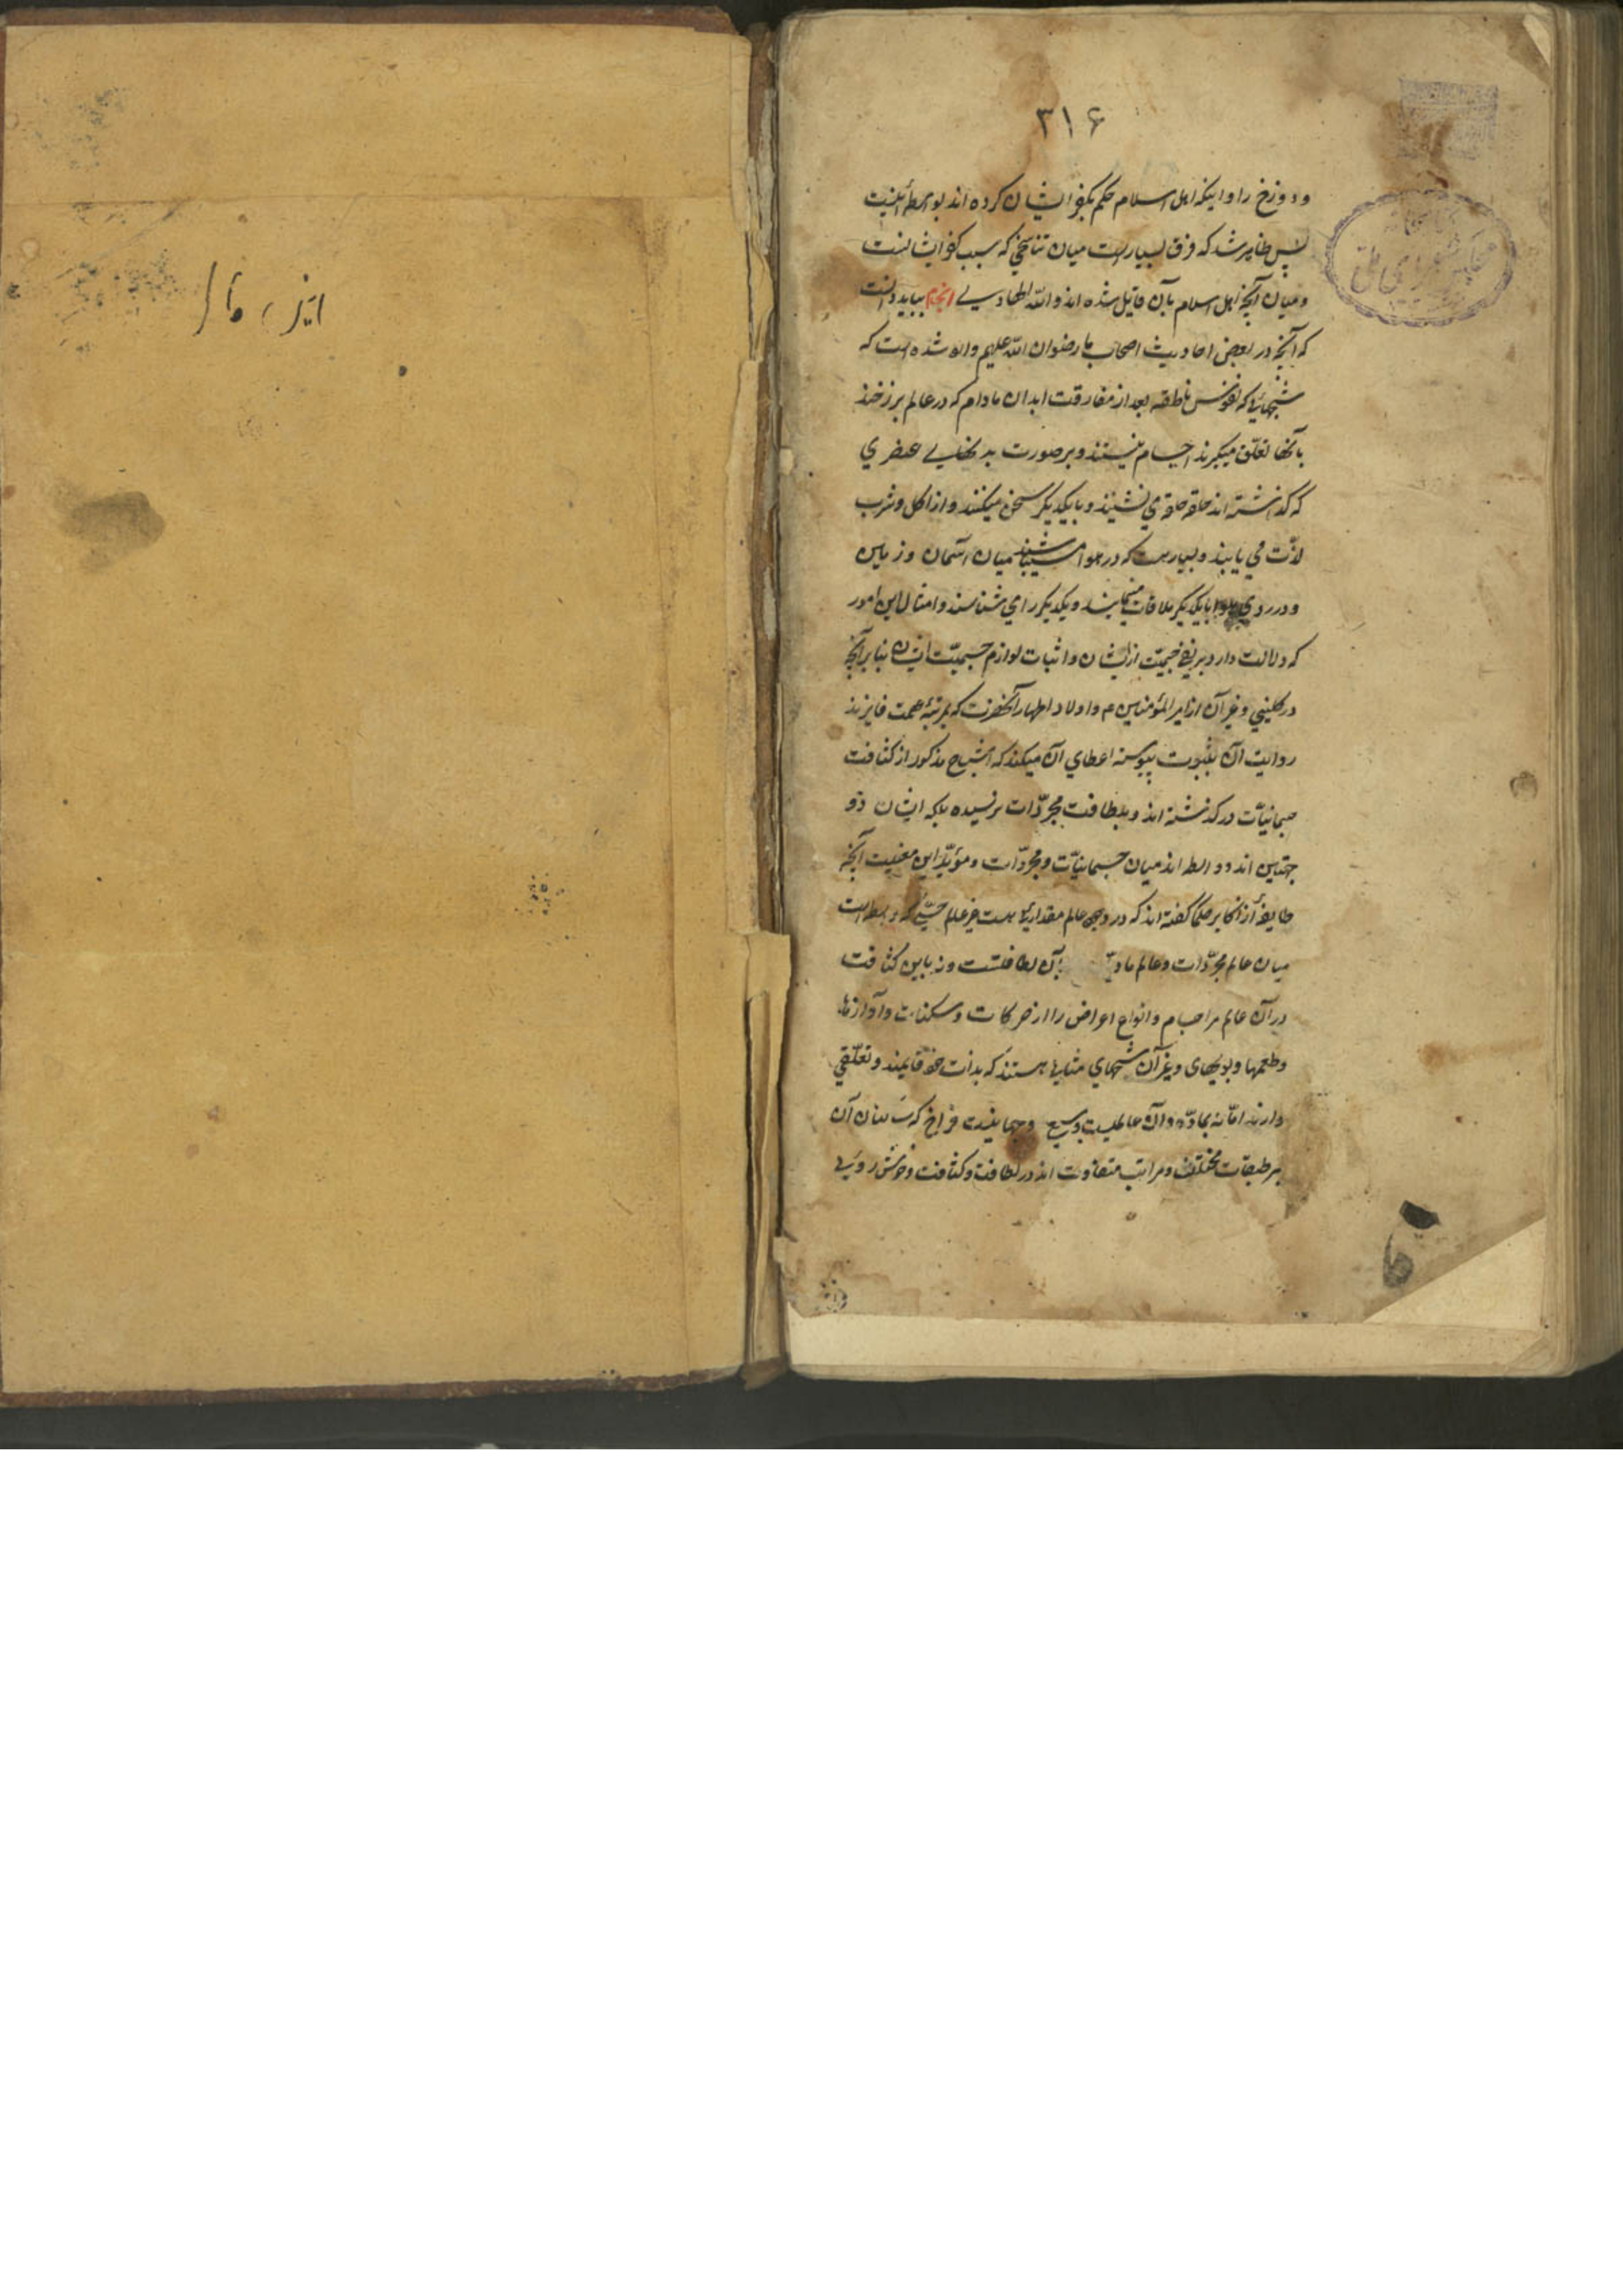 ۳۱۶
و دوزخ را و اینکه اهل اسلام حکم بکفر ایشان کرده اند بواسطه اینست
پس ظاهر شد که فرق بسیار است میان تناسخی که سبب کفر ایشانست
و میان آنچه اهل اسلام بآن قایل شده اند و الله الهادی انجام بباید دانست
که آنچه در بعض احادیث اصحاب ما رضوان الله علیهم وارد شده است که
شبحهائی که نفوس ناطقه بعد از مفارقت ابدان مادام که در عالم برزخند
بآنها تعلّق میگیرند اجسام نیستند و بر صورت بدنهای عنصری
که گذاشته اند حلقه حلقه می نشینند و با یکدیگر سخن میکنند و از اکل و شرب
لذّت می یابند و بسیار هست که در هوا میباشند میان آسمان و زمین
و در روی هوا با یکدیگر ملاقات مینمایند و یکدیگر را می شناسند و امثال این امور
که دلالت دارد بر نفی جسمیّت از ایشان و اثبات لوازم جسمیّت ایشان بنا بر آنچه
در کلینی و غیر آن از امیر المؤمنین م و اولاد اطهار آنحضرت که بمرتبه عصمت فایزند
روایت آن بثبوت پیوسته اعطای آن میکند که اشباح مذکور از کثافت
جسمانیّات در گذشته اند و بلطافت مجرّدات نرسیده بلکه ایشان ذو
جهتین اند و واسطه اند میان جسمانیّات و مجرّدات و مؤیّد این معنیست آنچه
طایفه از اکابر حکما گفته اند که در وجود عالم مقداری هست غیر عالم حسّی که واسطه است
میان عالم مجرّدات و عالم مادیّ بآن لطافتست و نه باین کثافت
در آن عالم مر اجسام و انواع اعراض را از حرکات و سکنات و آوازها
و طعمها و بویهای و غیر آن شبحهای مثالیه هستند که بذات خود قایمند و تعلّقی
دارند امّا نه بمادّه و آن عالمیست وسیع و جهانیست فراخ که ساکنان آن
بر طبقات مختلف و مراتب متفاوت اند در لطافت و کثافت و خوش رویی
مجلس شورای ملی